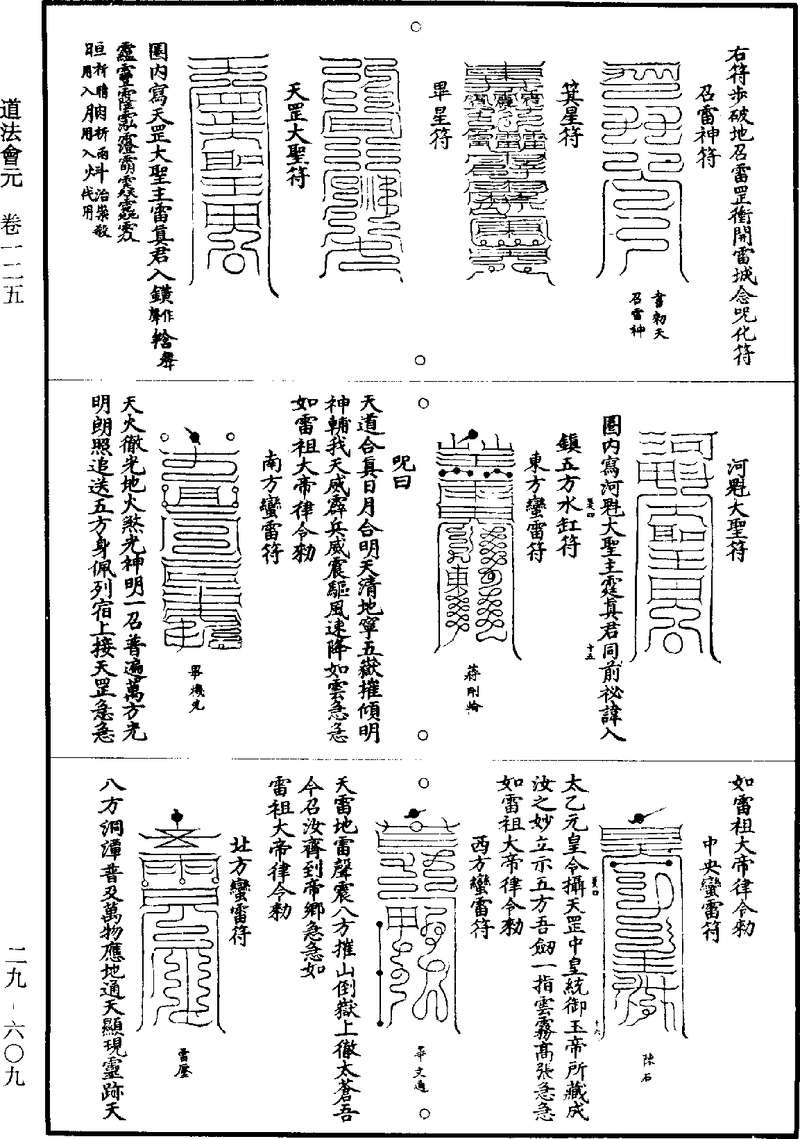 道法會元　卷一二五
右符步破地召雷罡衝開雷城念咒化符
召雷神符
書初天
召雷神
箕星符
畢星符
天罡大聖符
圈内寫天罡大聖主雷真君入
河魁大聖符
圈内寫河魁大聖主霆真君同前祕諱入
鎮五方水缸符
東方蠻雷符
蔣剛輪
呪曰
天道合真日月合明天清地寧五嶽摧傾明
神輔我天威霹兵威震驅風速降如雲急急
如雷祖大帝律令勑
南方蠻雷符
畢機先
天火徹光地火煞光神明一召普遍萬方光
明朗照追送五方身佩列宿上接天罡急急
如雷祖大帝律令勑
中央蠻雷符
陳石
太乙元皇令攝天罡中皇統御玉帝所藏成
汝之妙立示五方吾劒一指雲霧髙張急急
如雷祖大帝律令勑
西方蠻雷符
華文通
天雷地雷聲震八方摧山倒嶽上徹太蒼吾
今召汝齊到帝鄉急急如
雷祖大帝律令勑
北方蠻雷符
雷壓
八方洞潭普及萬物應地通天顯現靈跡天
二九-六〇九